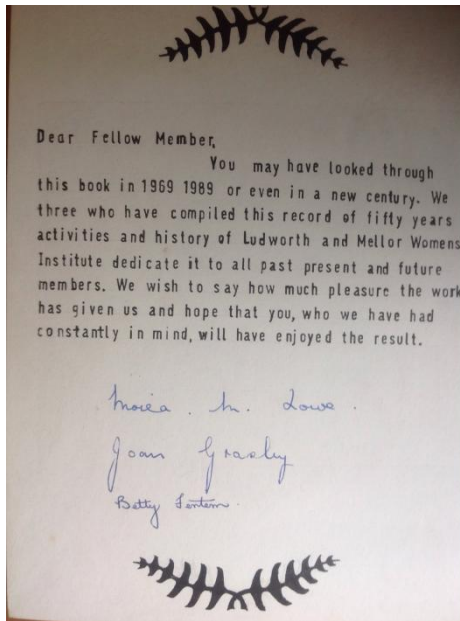 Dear Fellow Member,
You may have looked through
this book in 1969 1989 or even in a new century. We
three who have compiled this record of fifty years
activities and history of Ludworth and Mellor Womens
Institute dedicate it to all past present and future
members. We wish to say how much pleasure the work
has given us and hope that you, who we have had
constantly in mind, will have enjoyed the result.
M. Lowe.
Joan
Betty